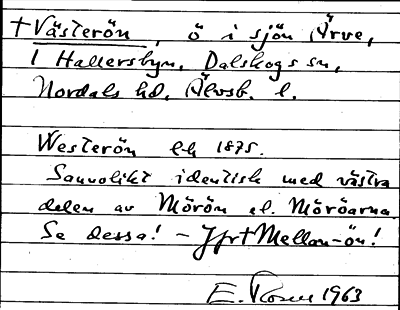 † Västerön, ö i sjön Ärve,
l Hallersbyn, Dalskogs sn,
Nordals hd, Älvsb. l.
Westerön lh 1875.
Sannolikt identisk med västra
delen av Mörön el. Möröarna.
Se dessa! – Jfrt Mellan-ön!
E. Rosell 1963